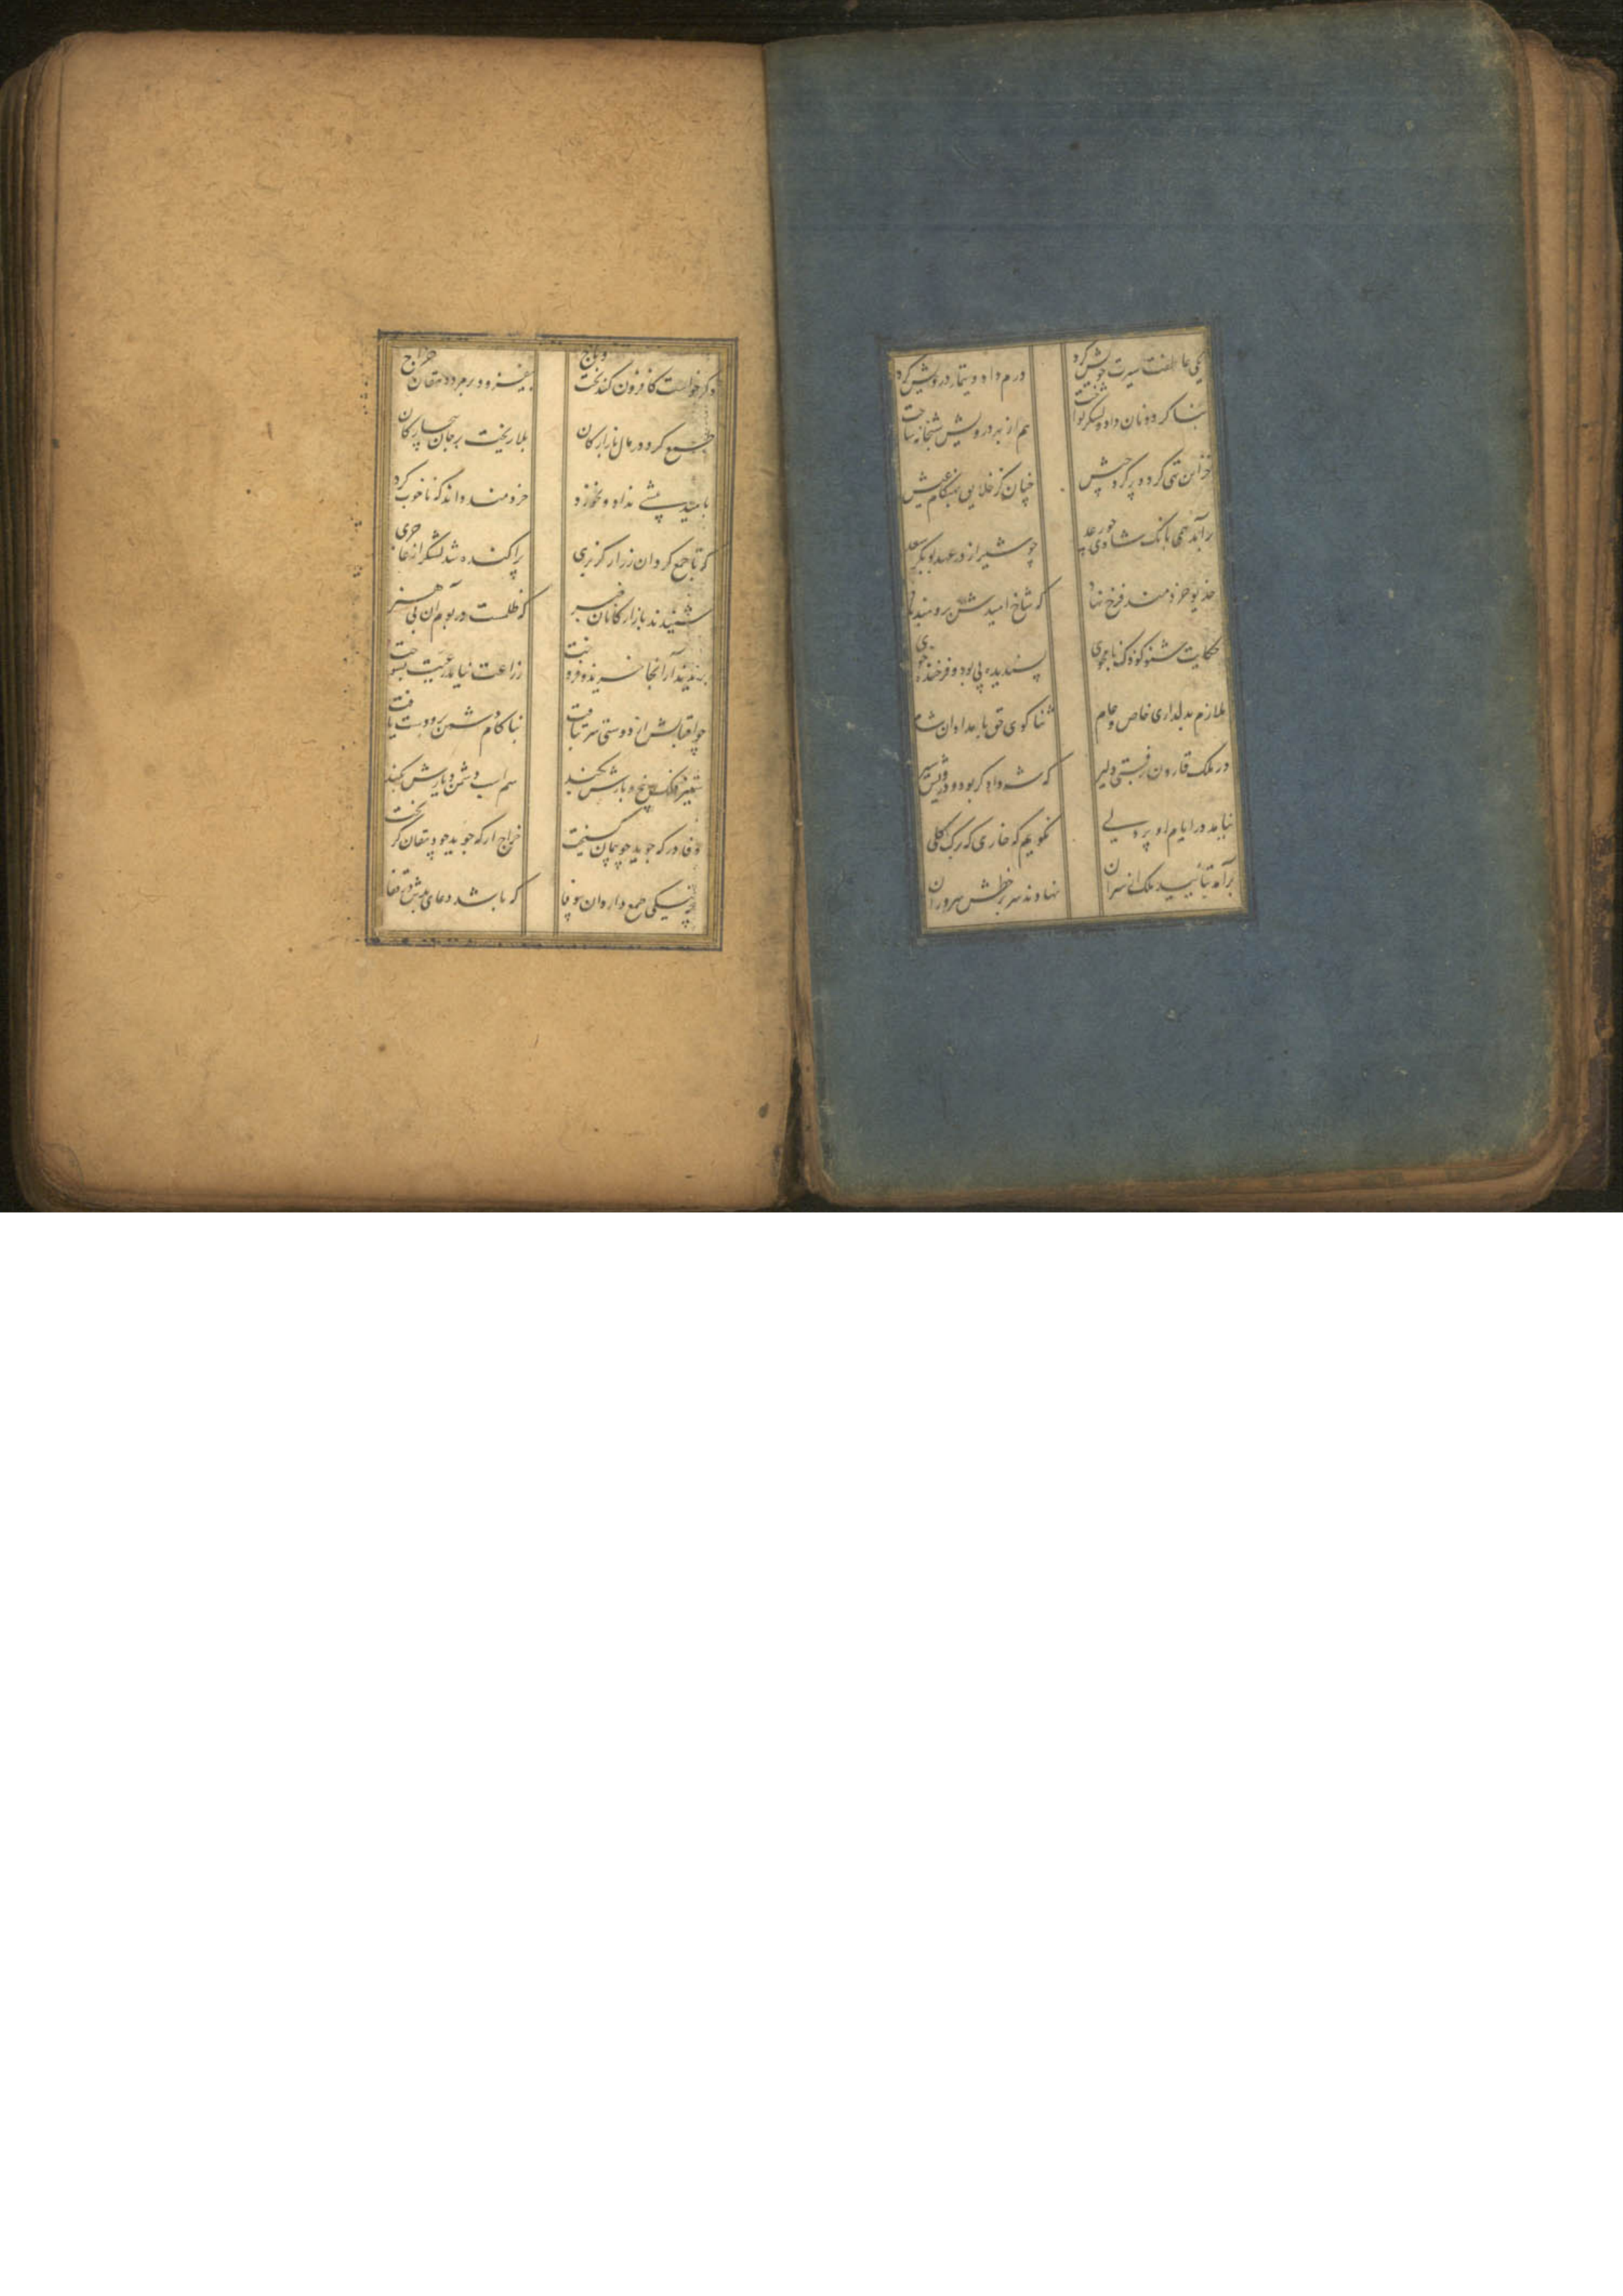 یکی عاطفت سیرت خویش کرد
درم داد و تیمار درویش کرد
بنا کرد و نان داد و لشکر نواخت
هم از بهر درویش شبخانه ساخت
خزاین تهی کرد و پر کرد جیش
چنان کز خلایق بهنگام عیش
برآمد همی بانگ شادی چو رعد
چو شیراز در عهد بوبکر سعد
خدیو خردمند فرخ نهاد
که شاخ امیدش برومند باد
حکایت شنو کودک نامجوی
پسندیده پی بود و فرخنده خوی
ملازم بدلداری خاص و عام
ثنا گوی حق بامدادان و شام
در ملک قارون برفتی دلیر
که شه دادگر بود و درویش سیر
نیامد در ایام او بر دلی
نگویم که خاری که برگ گلی
برآمد بتأیید ملک از سران
نهادند سر بر خطش سروران
دگر خواست کافزون کند تخت و تاج
بیفزود بر مرد دهقان خراج
طمع کرد در مال بازارکان
بلا ریخت بر جان بیچارکان
بامید بیشی نداد و نخورد
خردمند داند که ناخوب کرد
که تا جمع کرد آن زر از کربزی
پراکنده شد لشکر از عاجزی
شنیدند بازارکانان خبر
که ظلمست در بوم آن بی هنر
بریدند از آنجا خرید و فروخت
زراعت نیامد رعیت بسوخت
چو اقبالش از دوستی سر بتافت
بناکام دشمن برو دست یافت
ستیز فلک بیخ و بارش بکند
سم اسب دشمن دیارش بکند
وفا در که جوید چو پیمان گسیخت
خراج از که جوید چو دهقان گریخت
چه نیکی طمع دارد آن بی وفا
که باشد دعای بدش در قفا